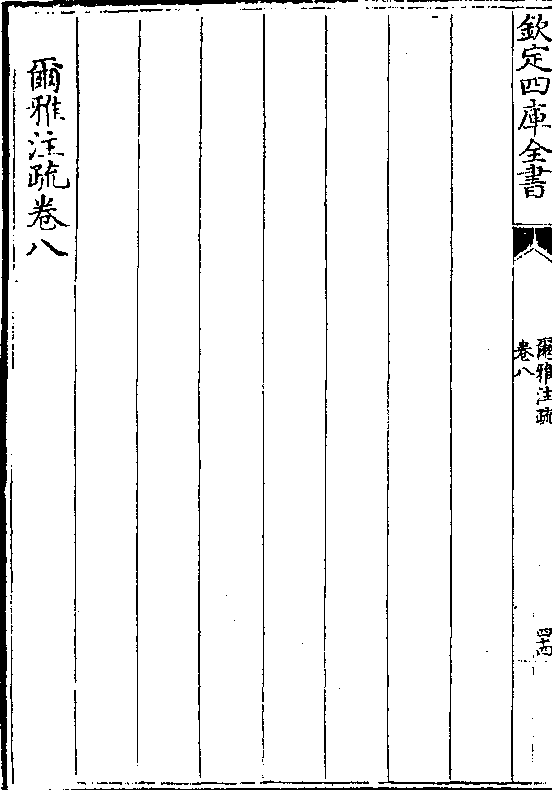 欽定四庫全書
爾雅注疏
卷八
四十四
爾雅注疏卷八